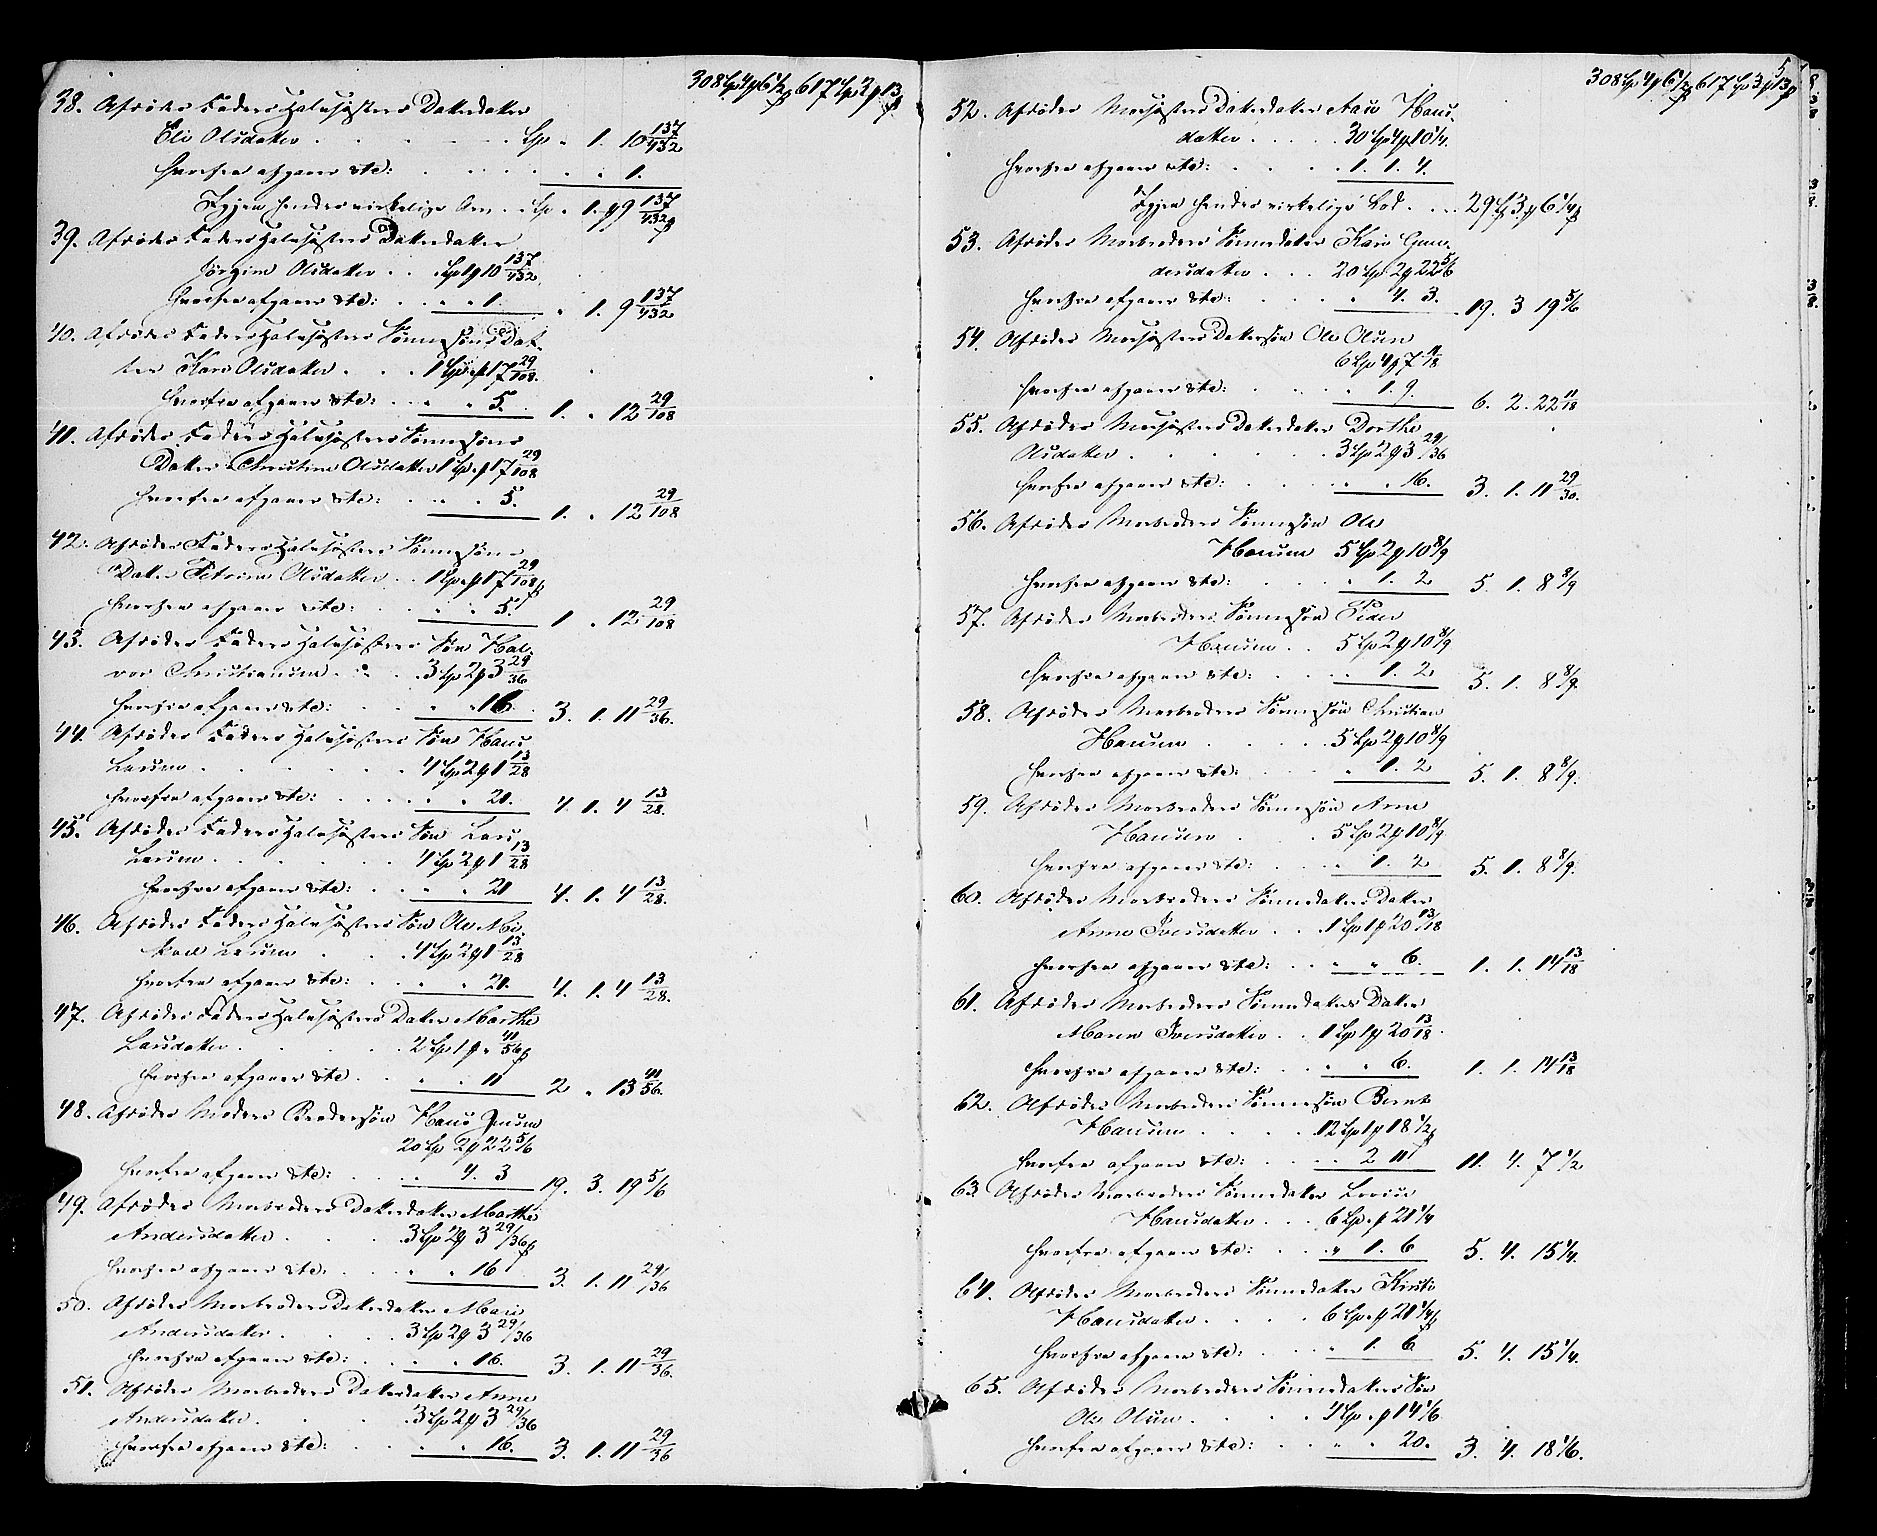 308 Sp 4 β 6 1/2 ß 617 Sp 2 β 13 ß
38. Afdødes Faders Halvsøsters Datterdatter
Eli Olsdatter . . . . . Sp „ 1. 10 137/432
hvorfra afgaaer &tc: . . . . . „ 1.
Igjen hendes virkelige Arv . . Sp „ 1 β 9 137/432 ß
39. Afdødes Faders Halvsøsters Datterdatter
Jørgine Olsdatter . . „ Sp 1 β 10 137/432
hvorfra afgaaer &tc: . . „ „ 1. „ 1. 9 137/432
40. Afdødes Faders Halvsøsters Sønnesøns Dat-
ter Kari Olsdatter . . . 1 Sp „ β 17 29/108.
hvorfra afgaaer &tc: . . „ „ 5. 1. „ 12 29/108
41. Afdødes Faders Halvsøsters Sønnesøns
Datter Christine Olsdatter 1 Sp „ β 17 29/108
hvorfra afgaaer &tc: . . „ „ 5. 1. „ 12 29/108
42. Afdødes Faders Halvsøsters Sønnesøns
Datter Petrine Olsdatter . . 1 Sp „ β 17 29/108 ß
hvorfra afgaaer &tc: . . „ „ 5. 1. „ 12 29/108
43. Afdødes Faders Halvsøsters Søn Hal-
vor Christiansen . . . 3 Sp 2 β 3 29/36
hvorfra afgaaer &tc: . . „ „ 16. 3. 1. 11 29/36.
44. Afdødes Faders Halvsøsters Søn Hans
Larsen . . . . . . 4 Sp 2 β 1 13/28
hvorfra afgaaer &tc: . . . „ „ 21. 4. 1. 4 13/28.
45. Afdødes Faders Halvsøsters Søn Lars
Larsen . . . . . . 4 Sp 2 β 1 13/28
hvorfra afgaaer &tc: . . „ „ 21 4. 1. 4 13/28.
46. Afdødes Faders Halvsøsters Søn Ole Mi-
kael Larsen . . . 4 Sp 2 β 1 13/28
hvorfra afgaaer &tc: . . „ „ 21. 4. 1. 4 13/28.
47. Afdødes Faders Halvsøsters Datter Marthe
Larsdatter . . . . . 2 Sp 1 β „ 41/56 ß
hvorfra afgaaer &tc . . „ „ 11 2 „ 13 41/56.
48. Afdødes Moders Brodersøn Hans Jensen
20 Sp 2 β 22 5/6
hvorfra afgaaer &tc: . . . „ 4. 3 19. 3. 19 5/6
49. Afdødes Morbroders Datterdatter Marthe
Andersdatter . . . . 3 Sp 2 β 3 29/36 ß
hvorfra afgaaer &tc: . . . „ „ 16 3. 1. 11 29/36
50. Afdødes Morbroders Datterdatter Mari
Andersdatter . . . . 3 Sp 2 β 3 29/36
hvorfra afgaaer &tc: . . „ „ 16. 3. 1. 11 29/36.
51. Afdødes Morbroders Datterdatter Anne
Andersdatter . . . . 3 Sp 2 β 3 29/36
hvorfra afgaaer &tc: . . „ „ 16. 3. 1. 11 29/36
5
308 Sp 4 β 6 1/2 ß 617 Sp 3 β 13 ß
52. Afdødes Morsøsters Datterdatter Aase Hans-
datter . . . . . 30 Sp 4 β 10 1/4.
hvorfra afgaaer &tc: . . . . 1. 1. 4.
Igjen hendes virkelige Lod . . . 29 Sp 3 β 6 1/4 ß
53. Afdødes Morbroders Sønnedatter Kari Gun-
dersdatter . . . 20 Sp 2 β 22 5/6
hvorfra afgaaer &tc: . . . „ 4. 3. 19. 3 19 5/6
54. Afdødes Morsøsters Dattersøn Ole Olsen
6 Sp 4 β 7 11/18
hvorfra afgaaer &tc: . . . „ 1. 9. 6. 2. 22 11/18
55. Afdødes Morsøsters Datterdatter Dorthe
Olsdatter . . . . . . 3 Sp 2 β 3 29/36
hvorfra afgaaer &tc: . . . „ „ 16. 3. 1. 11 29/30.
56. Afdødes Morbroders Sønnesøn Ole
Hansen 5 Sp 2 β 10 8/9
hvorfra afgaaer &tc: . . . „ 1. 2 5. 1. 8 8/9
57. Afdødes Morbroders Sønnesøn Peder
Hansen . . 5 Sp 2 β 10 8/9
hvorfra afgaaer &tc: . . . „ 1. 2 5. 1. 8 8/9.
58. Afdødes Morbroders Sønnesøn Christian
Hansen . . . . . 5 Sp 2 β 10 8/9
hvorfra afgaaer &tc: . . . „ 1. 2 5. 1. 8 8/9.
59. Afdødes Morbroders Sønnesøn Arne
Hansen . . . 5 Sp 2 β 10 8/9
hvorfra afgaaer &tc: . . . „ 1. 2 5. 1. 8 8/9.
60. Afdødes Morbroders Sønnedatters Datter
Anne Iversdatter . . 1 Sp 1 β 20 13/18
hvorfra afgaaer &tc: . . „ „ 6. 1. 1. 14 13/18
61. Afdødes Morbroders Sønnedatters Datter
Maren Iversdatter . . 1 Sp 1 β 20 13/18.
hvorfra afgaaer &tc: . . „ „ 6. 1. 1. 14 13/18
62. Afdødes Morbroders Sønnesøn Bernt
Hansen . . . . . 12 Sp 1 β 18 1/2 ß
hvorfra afgaaer &tc: . . . 2 11 11. 4. 7 1/2
63. Afdødes Morbroders Sønnedatter Lovise
Hansdatter . . . 6 Sp „ β 21 1/4
hvorfra afgaaer &tc: . . . „ 1. 6 5. 4. 15 1/4.
64. Afdødes Morbroders Sønnedatter Kirsti
Hansdatter . . . . . 6 Sp „ β 21 1/4 ß
hvorfra afgaaer &tc: . . . „ 1. 6 5. 4. 15 1/4.
65. Afdødes Morbroders Sønnedatters Søn
Ole Olsen . . . . . 4 Sp „ β 14 1/6.
hvorfra afgaaer &tc: . . „ „ 20. 3. 4. 18 1/6.